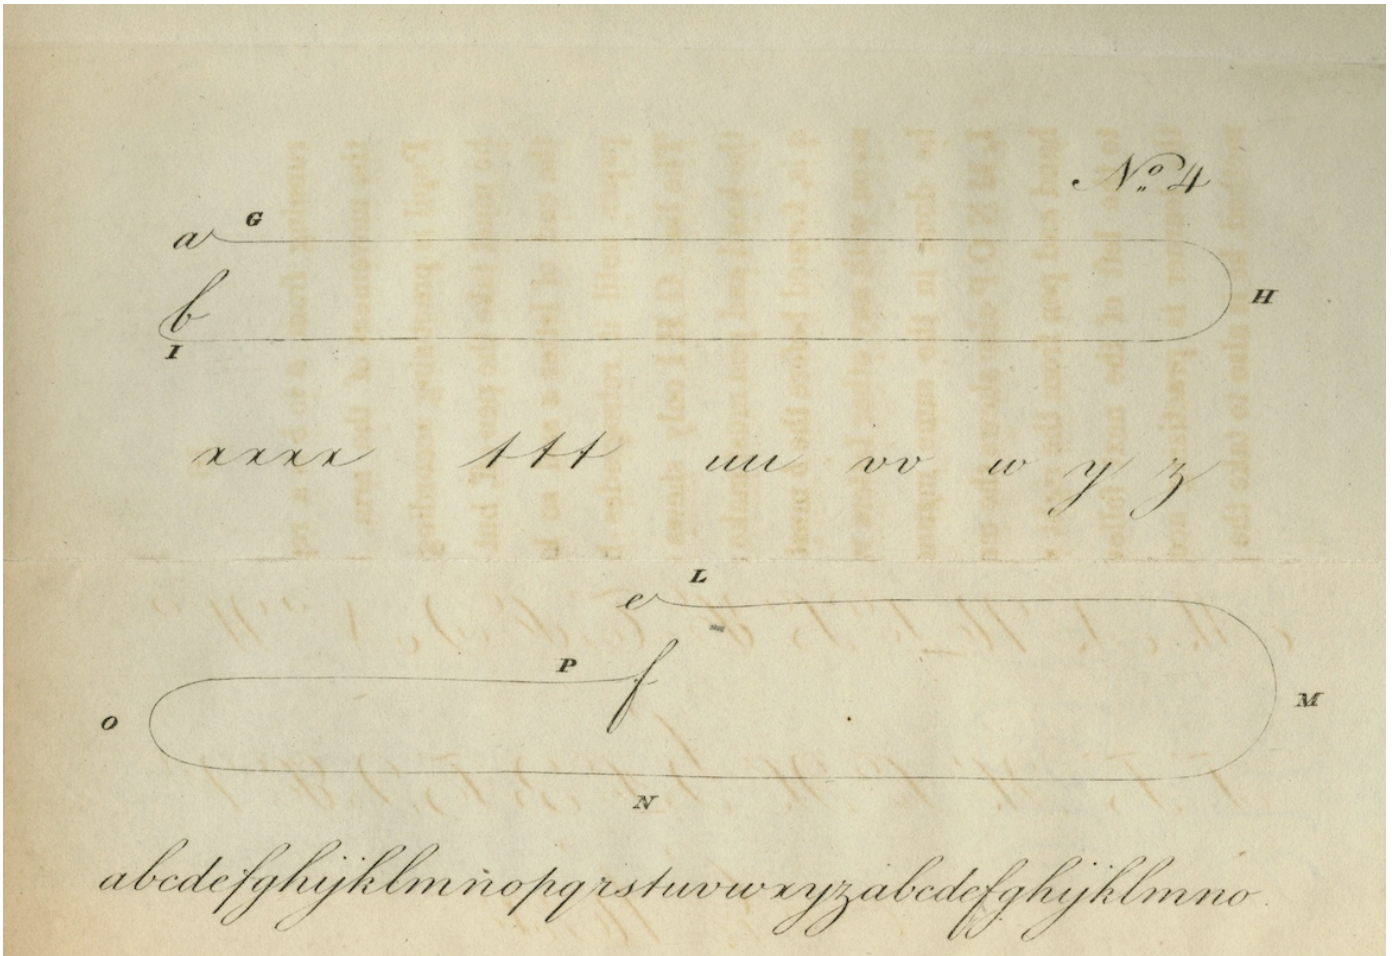 No 4
a G
H
b
I
xxxx ttt uu vv w y z
L
e
P f
O M
N
abcdefghijklmnopqrstuvwxyzabcdefghijklmno